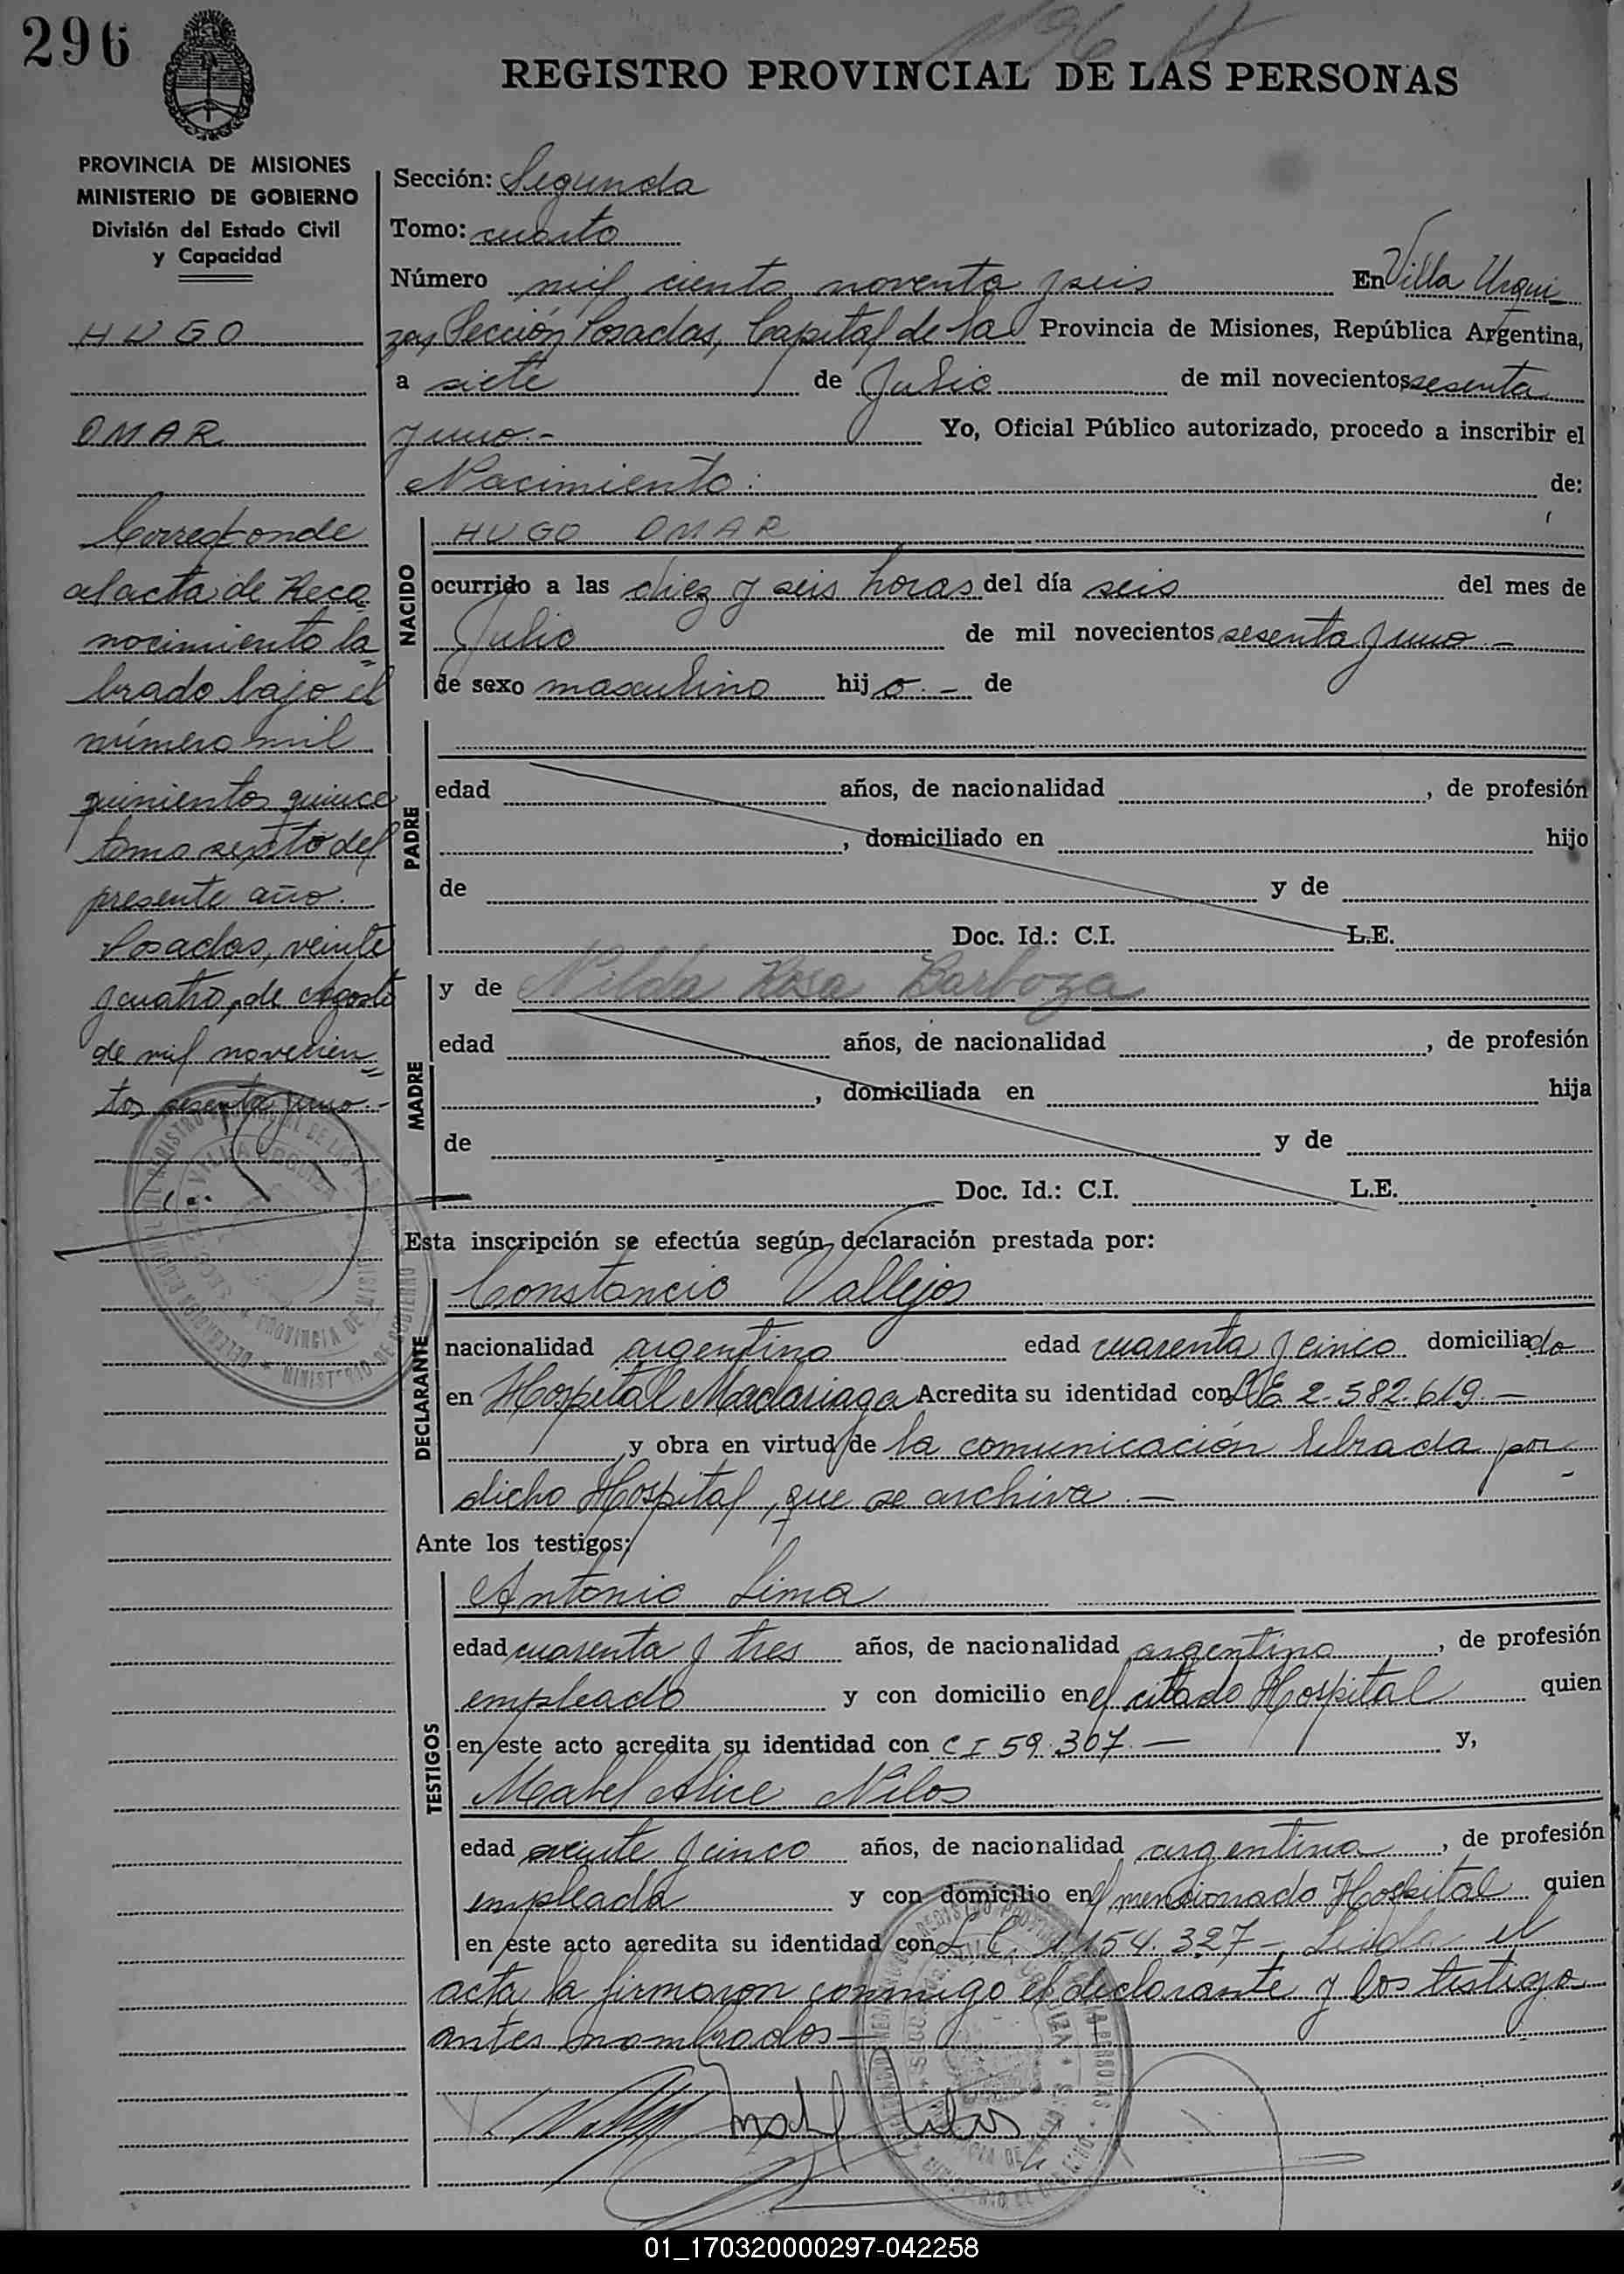 296
REGISTRO PROVINCIAL DE LAS PERSONAS
PROVINCIA DE MISIONES
MINISTERIO DE GOBIERNO
División del Estado Civil
y Capacidad
HUGO
OMAR
Corresponde
al acta de Reco
nocimiento la=
brado bajo el
número mil
quinientos quince
tomo sexto del
presente año.
Posadas, veinte
y cuatro, de Agosto
de mil novecien=
tos sesenta y uno.-
Sección: Segunda
Tomo: cuarto
Número mil ciento noventa y seis En Villa Urqui
za, Sección Posadas, Capital de la Provincia de Misiones, República Argentina,
a siete de Julio de mil novecientos sesenta
y uno.- Yo, Oficial Público autorizado, procedo a inscribir el
Nacimiento: de:
NACIDO
HUGO OMAR
ocurrido a las diez y seis horas del día seis del mes de
Julio de mil novecientos sesenta y uno.-
de sexo masculino hijo.- de
PADRE
edad años, de nacionalidad , de profesión
, domiciliado en hijo
de y de
Doc. Id.: C.I. L.E.
MADRE
y de Nilda Rosa Barboza
edad años, de nacionalidad , de profesión
, domiciliada en hija
de y de
Doc. Id.: C.I. L.E.
Esta inscripción se efectúa según declaración prestada por:
DECLARANTE
Constancio Vallejos
nacionalidad argentino edad cuarenta y cinco domiciliado
en Hospital Madariaga Acredita su identidad con LE 2-582.619.-
y obra en virtud de la comunicación librada por
dicho Hospital, que se archiva.-
Ante los testigos:
TESTIGOS
Antonio Lima
edad cuarenta y tres años, de nacionalidad argentino, de profesión
empleado y con domicilio en el citado Hospital quien
en este acto acredita su identidad con CI 59.307.- y,
Mabel Alice Nilos
edad veinte y cinco años, de nacionalidad argentina, de profesión
empleada y con domicilio en el mencionado Hospital quien
en este acto acredita su identidad con L C. 1.154.327-. Leída el
acta la firmaron conmigo el declarante y los testigos
antes nombrados-
01_170320000297-042258